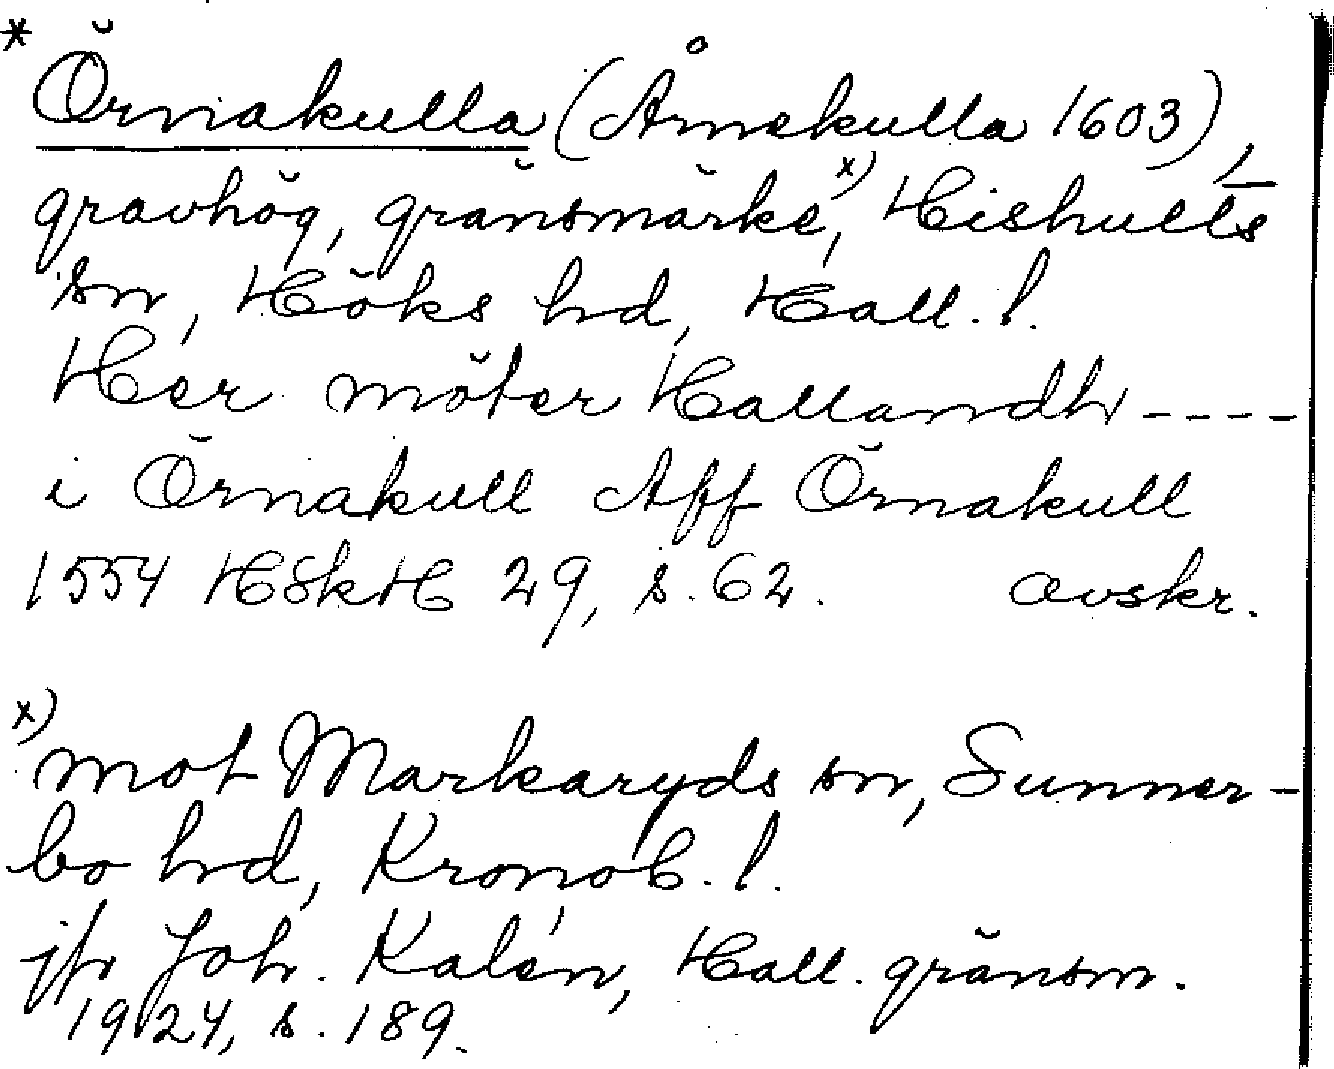 * Örnakulla (Årnekulla 1603),
gravhög, gränsmärke,x) Hishults
sn, Höks hd, Hall. l.
Her möter Hallandh ----
i Örnakull Aff Örnakull
1554 HSkH 29, s. 62. avskr.
x) mot Markaryds sn, Sunner-
bo hd, Kronob. l.
jfr Joh. Kalén, Hall. gränsm.
1924, s. 189.